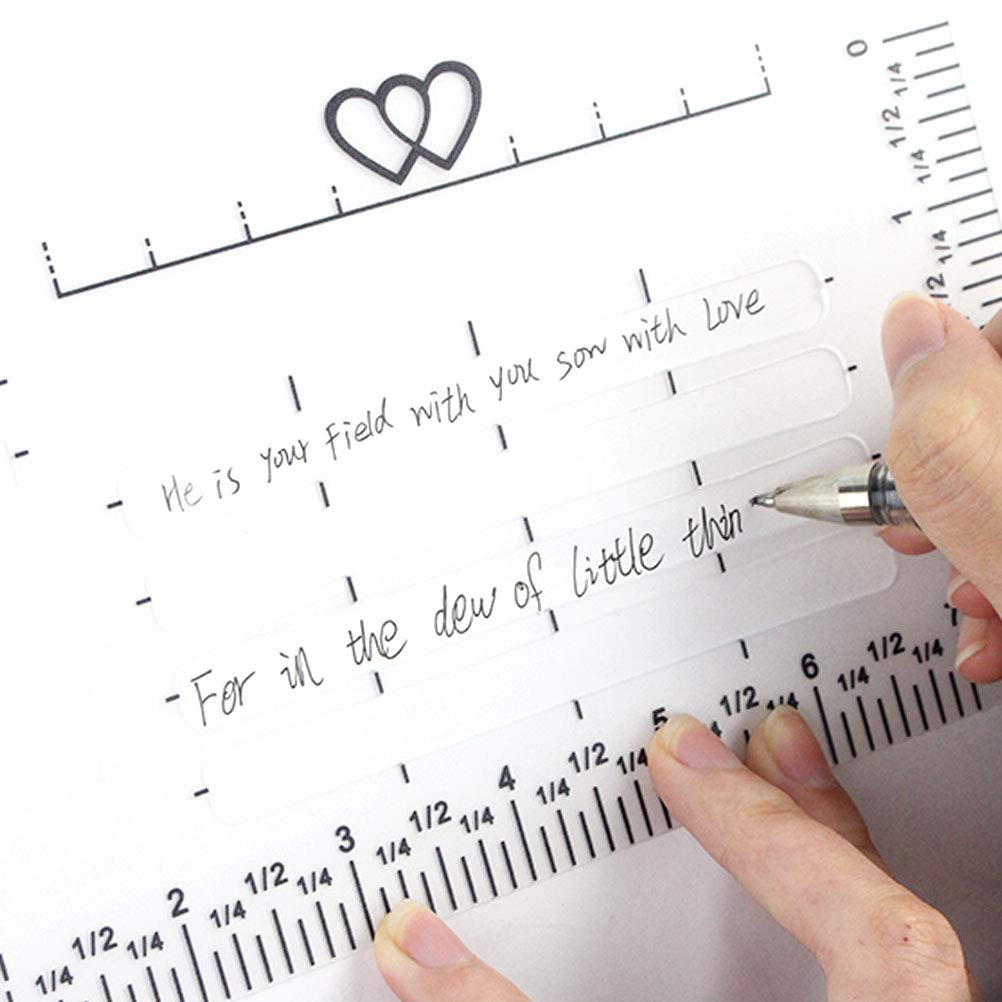 0
1/4
1/2
1/4
1
1/4
1/2
He is your Field with you sow with Love
For in the dew of little thin
1/4 1/2 1/4 2 1/4 1/2 1/4 3 1/4 1/2 1/4 4 1/4 1/2 1/4 5 1/2 1/4 6 1/4 1/2 1/4 7